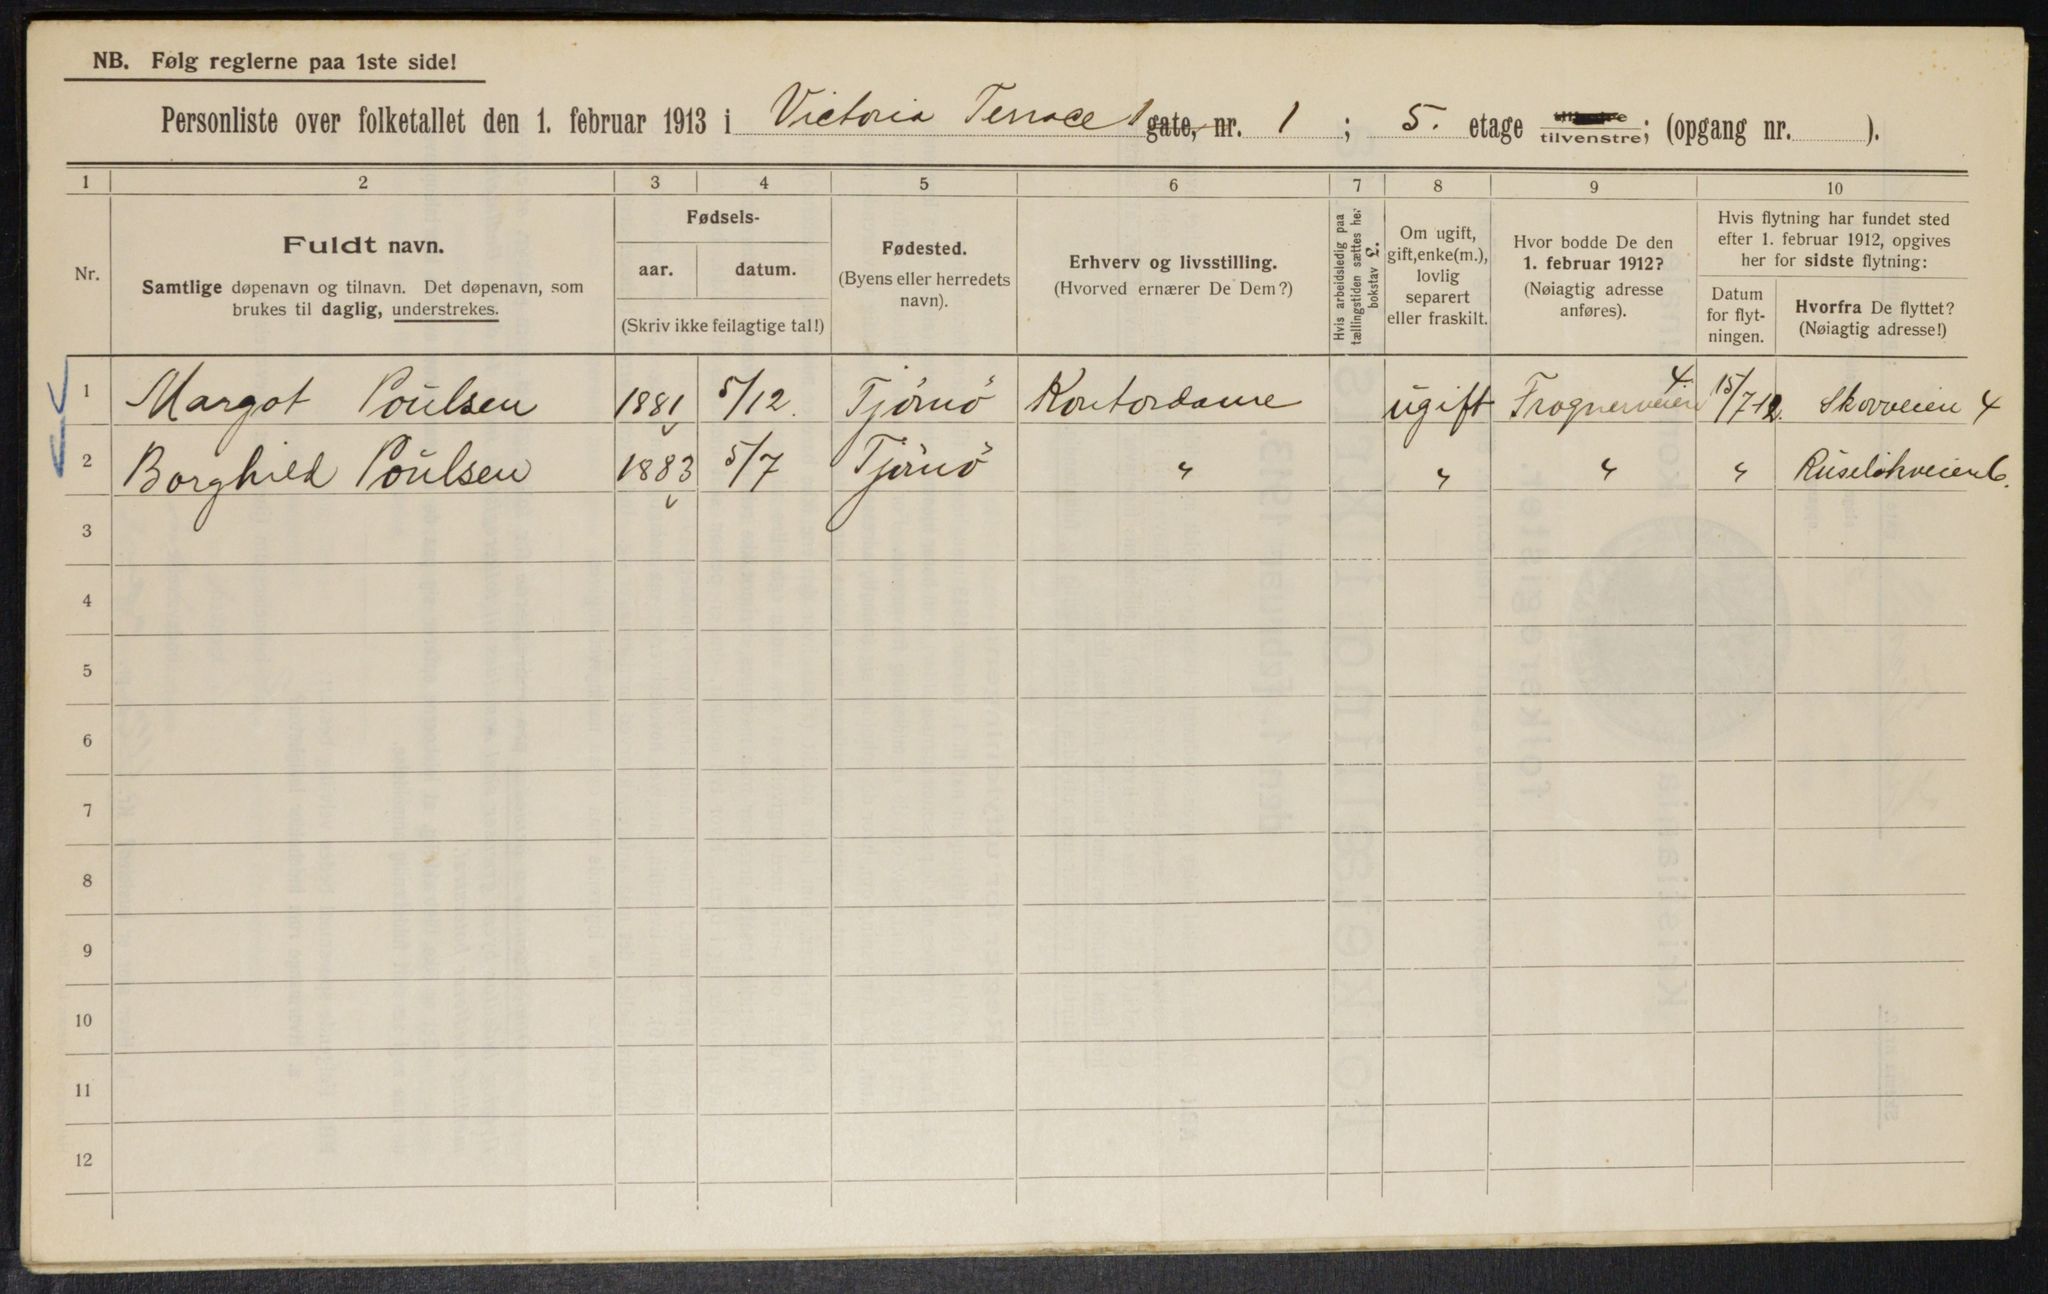 NB. Følg reglerne paa 1ste side!
Personliste over folketallet den 1. februar 1913 i Victoria Terrace 1 gate, nr. 1 ; 5. etage tilvenstre; (opgang nr. ).
1 2 3 4 5 6 7 8 9 10
Nr.
Fuldt navn.
Samtlige døpenavn og tilnavn. Det døpenavn, som
brukes til daglig, understrekes.
Fødsels-
aar. datum.
(Skriv ikke feilagtige tal!)
Fødested.
(Byens eller herredets
navn).
Erhverv og livsstilling.
(Hvorved ernærer De Dem?)
Hvis arbeidsledig paa
tællingstiden sættes her
bokstav L.
Om ugift,
gift, enke(m.),
lovlig
separert
eller fraskilt.
Hvor bodde De den
1. februar 1912?
(Nøiagtig adresse
anføres).
Hvis flytning har fundet sted
efter 1. februar 1912, opgives
her for sidste flytning:
Datum
for flyt-
ningen.
Hvorfra De flyttet?
(Nøiagtig adresse!)
1 Margot Poulsen 1881 5/12. Tjömö Kontordame ugift Frognerveien 4. 15/7-12. Skovveien 4
2 Borghild Poulsen 1883 5/7 Tjömö " " " " Ruseløkveien 6.
3
4
5
6
7
8
9
10
11
12